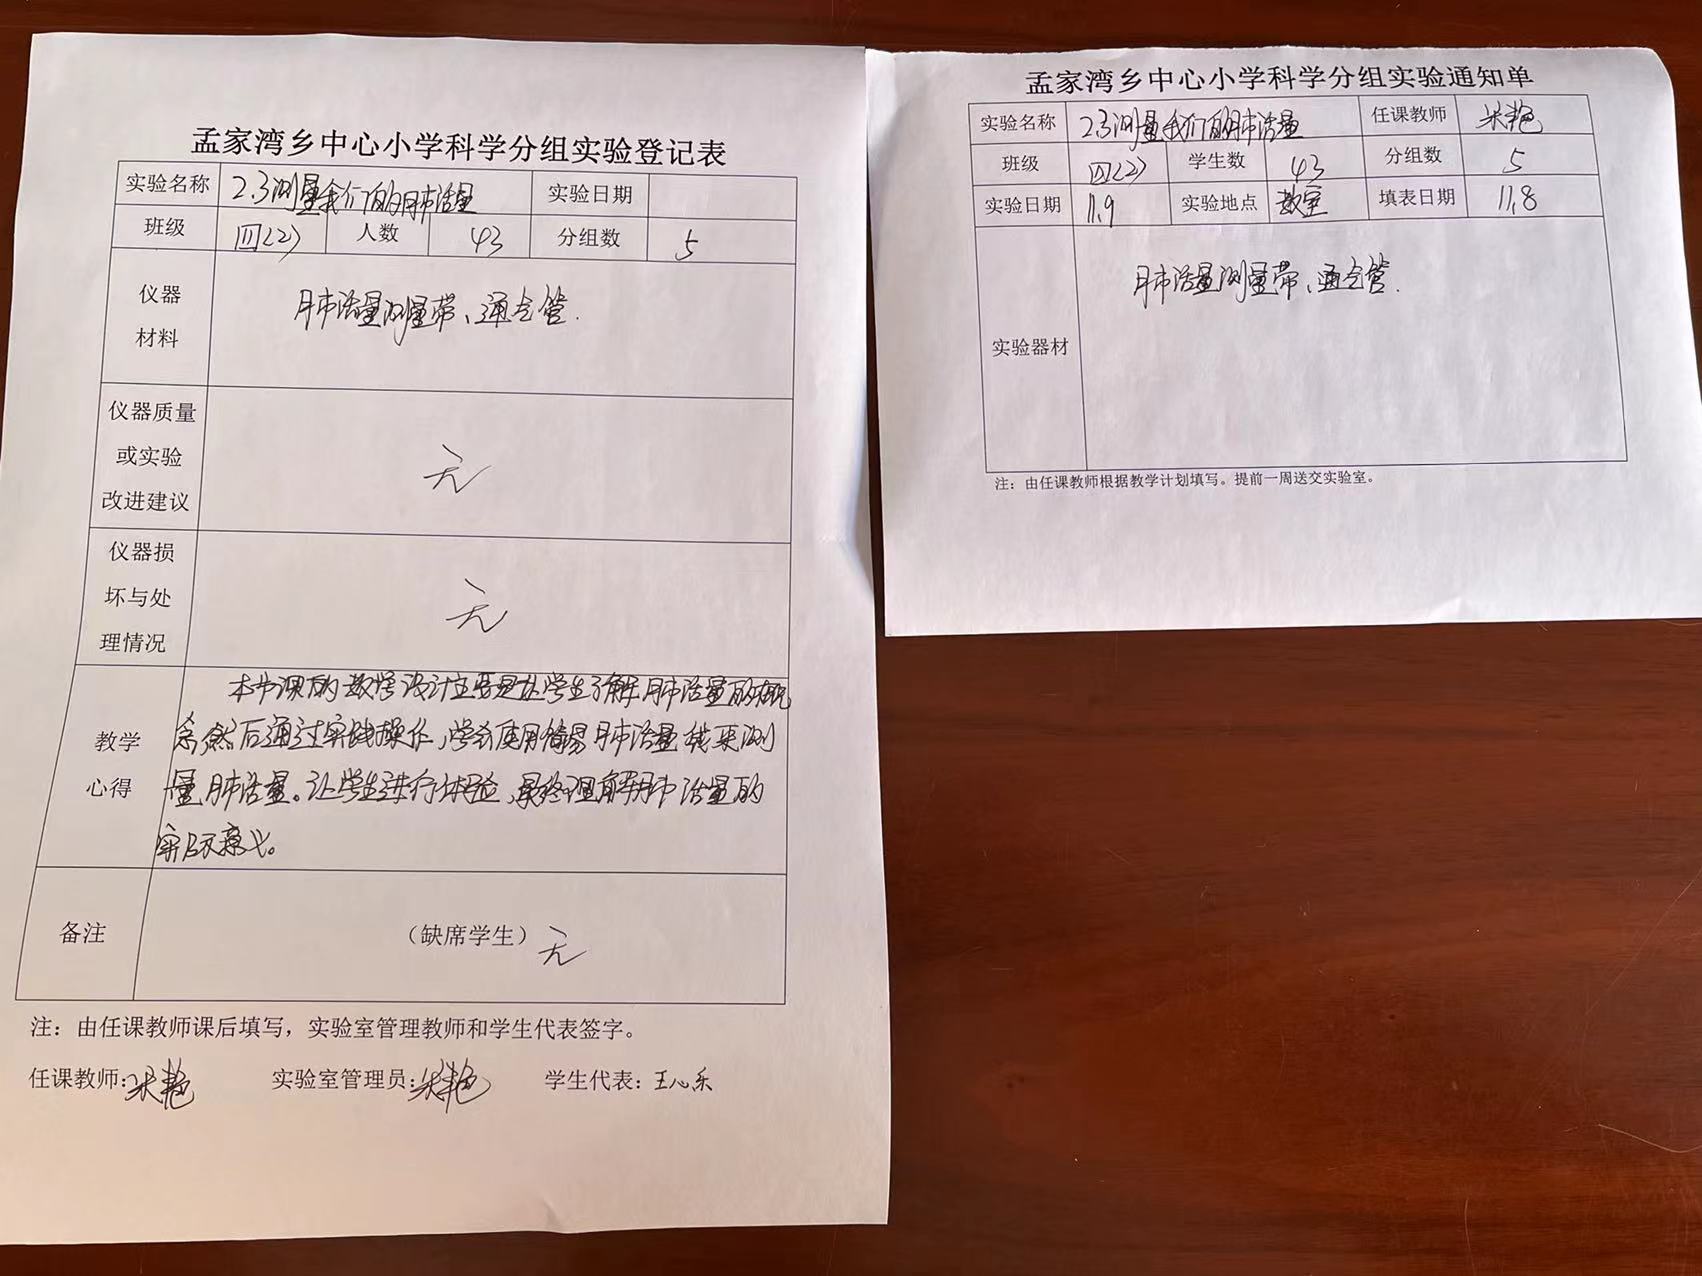 孟家湾乡中心小学科学分组实验登记表
实验名称 2.3测量我们的肺活量 实验日期
班级 四(2) 人数 43 分组数 5
仪器
材料
肺活量测量带、通气管.
仪器质量
或实验
改进建议
无
仪器损
坏与处
理情况
无
教学
心得
本节课的教学设计主要是让学生了解肺活量的概
念,然后通过实践操作,学会使用简易肺活量袋来测
量肺活量。让学生进行体验,最终理解肺活量的
实际意义。
备注
(缺席学生)无
注:由任课教师课后填写,实验室管理教师和学生代表签字。
任课教师: 艳 实验室管理员: 艳 学生代表:王心乐
孟家湾乡中心小学科学分组实验通知单
实验名称 2.3测量我们的肺活量 任课教师 艳
班级 四(2) 学生数 43 分组数 5
实验日期 11.9 实验地点 教室 填表日期 11.8
实验器材
肺活量测量带、通气管.
注:由任课教师根据教学计划填写。提前一周送交实验室。